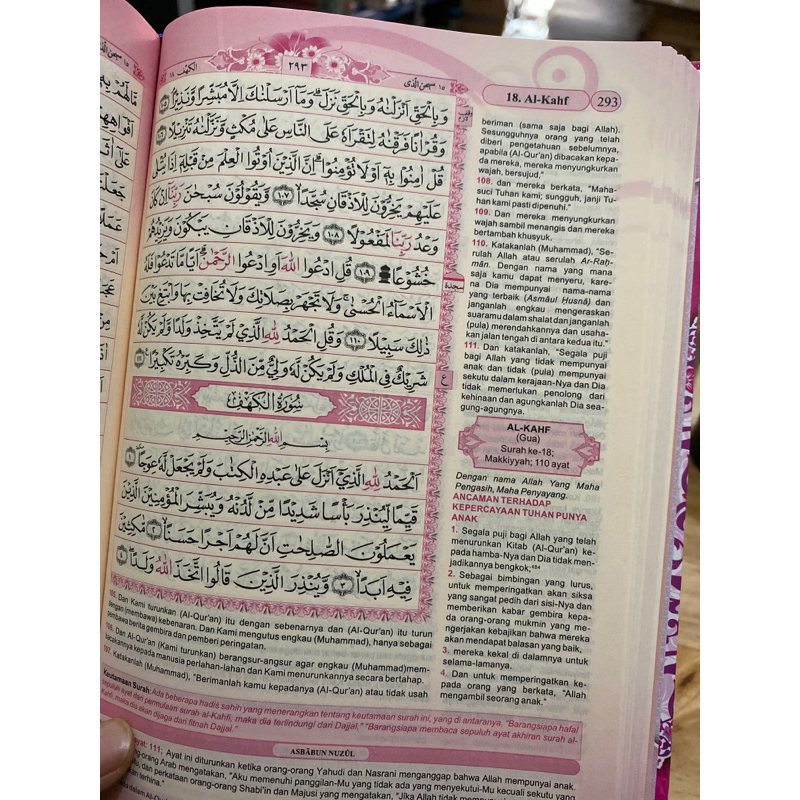 ١٥ سبحن الذي
٢٩٣
الكهف ١٨
18. Al-Kahf 293
وَبِالْحَقِّ اَنْزَلْنٰهُ وَبِالْحَقِّ نَزَلَۗ وَمَآ اَرْسَلْنٰكَ اِلَّا مُبَشِّرًا وَّنَذِيْرًاۘ ١٠٥
وَقُرْاٰنًا فَرَقْنٰهُ لِتَقْرَاَهٗ عَلَى النَّاسِ عَلٰى مُكْثٍ وَّنَزَّلْنٰهُ تَنْزِيْلًا ١٠٦
قُلْ اٰمِنُوْا بِهٖٓ اَوْ لَا تُؤْمِنُوْاۗ اِنَّ الَّذِيْنَ اُوْتُوا الْعِلْمَ مِنْ قَبْلِهٖٓ اِذَا يُتْلٰى
عَلَيْهِمْ يَخِرُّوْنَ لِلْاَذْقَانِ سُجَّدًاۙ ١٠٧ وَّيَقُوْلُوْنَ سُبْحٰنَ رَبِّنَآ اِنْ كَانَ
وَعْدُ رَبِّنَا لَمَفْعُوْلًا ١٠٨ وَيَخِرُّوْنَ لِلْاَذْقَانِ يَبْكُوْنَ وَيَزِيْدُهُمْ
خُشُوْعًا ۩ ١٠٩ قُلِ ادْعُوا اللّٰهَ اَوِ ادْعُوا الرَّحْمٰنَۗ اَيًّا مَّا تَدْعُوْا فَلَهُ
الْاَسْمَاۤءُ الْحُسْنٰىۚ وَلَا تَجْهَرْ بِصَلَاتِكَ وَلَا تُخَافِتْ بِهَا وَابْتَغِ بَيْنَ
ذٰلِكَ سَبِيْلًا ١١٠ وَقُلِ الْحَمْدُ لِلّٰهِ الَّذِيْ لَمْ يَتَّخِذْ وَلَدًا وَّلَمْ يَكُنْ لَّهٗ
شَرِيْكٌ فِى الْمُلْكِ وَلَمْ يَكُنْ لَّهٗ وَلِيٌّ مِّنَ الذُّلِّ وَكَبِّرْهُ تَكْبِيْرًا ١١١
سُوْرَةُ الْكَهْفِ
بِسْمِ اللّٰهِ الرَّحْمٰنِ الرَّحِيْمِ
اَلْحَمْدُ لِلّٰهِ الَّذِيْٓ اَنْزَلَ عَلٰى عَبْدِهِ الْكِتٰبَ وَلَمْ يَجْعَلْ لَّهٗ عِوَجًاۜ ١
قَيِّمًا لِّيُنْذِرَ بَأْسًا شَدِيْدًا مِّنْ لَّدُنْهُ وَيُبَشِّرَ الْمُؤْمِنِيْنَ الَّذِيْنَ
يَعْمَلُوْنَ الصّٰلِحٰتِ اَنَّ لَهُمْ اَجْرًا حَسَنًاۙ ٢ مَّاكِثِيْنَ
فِيْهِ اَبَدًاۙ ٣ وَّيُنْذِرَ الَّذِيْنَ قَالُوا اتَّخَذَ اللّٰهُ وَلَدًاۖ ٤
سجدة
ع
beriman (sama saja bagi Allah).
Sesungguhnya orang yang telah
diberi pengetahuan sebelumnya,
apabila (Al-Qur'an) dibacakan kepa-
da mereka, mereka menyungkurkan
wajah, bersujud,"
108. dan mereka berkata, "Maha-
suci Tuhan kami; sungguh, janji Tu-
han kami pasti dipenuhi."
109. Dan mereka menyungkurkan
wajah sambil menangis dan mereka
bertambah khusyuk.
110. Katakanlah (Muhammad), "Se-
rulah Allah atau serulah Ar-Raḥ-
mān. Dengan nama yang mana
saja kamu dapat menyeru, kare-
na Dia mempunyai nama-nama
yang terbaik (Asmāul Ḥusnā) dan
janganlah engkau mengeraskan
suaramu dalam shalat dan janganlah
(pula) merendahkannya dan usaha-
kan jalan tengah di antara kedua itu."
111. Dan katakanlah, "Segala puji
bagi Allah yang tidak mempunyai
anak dan tidak (pula) mempunyai
sekutu dalam kerajaan-Nya dan Dia
tidak memerlukan penolong dari
kehinaan dan agungkanlah Dia sea-
gung-agungnya.
AL-KAHF
(Gua)
Surah ke-18;
Makkiyyah; 110 ayat
Dengan nama Allah Yang Maha
Pengasih, Maha Penyayang.
ANCAMAN TERHADAP
KEPERCAYAAN TUHAN PUNYA
ANAK
1. Segala puji bagi Allah yang telah
menurunkan Kitab (Al-Qur'an) ke-
pada hamba-Nya dan Dia tidak men-
jadikannya bengkok;⁴⁸⁴
2. Sebagai bimbingan yang lurus,
untuk memperingatkan akan siksa
yang sangat pedih dari sisi-Nya dan
memberikan kabar gembira kepa-
da orang-orang mukmin yang me-
ngerjakan kebajikan bahwa mereka
akan mendapat balasan yang baik,
3. mereka kekal di dalamnya untuk
selama-lamanya.
4. Dan untuk memperingatkan ke-
pada orang yang berkata, "Allah
mengambil seorang anak."
105. Dan Kami turunkan (Al-Qur'an) itu dengan sebenarnya dan (Al-Qur'an) itu turun
dengan (membawa) kebenaran. Dan Kami mengutus engkau (Muhammad), hanya sebagai
pembawa berita gembira dan pemberi peringatan.
106. Dan Al-Qur'an (Kami turunkan) berangsur-angsur agar engkau (Muhammad)mem-
bacakannya kepada manusia perlahan-lahan dan Kami menurunkannya secara bertahap.
107. Katakanlah (Muhammad), "Berimanlah kamu kepadanya (Al-Qur'an) atau tidak usah
Keutamaan Surah: Ada beberapa hadis sahih yang menerangkan tentang keutamaan surah ini, yang di antaranya. "Barangsiapa hafal
sepuluh ayat dari permulaan surah al-Kahfi, maka dia terlindungi dari Dajjal." "Barangsiapa membaca sepuluh ayat akhiran surah al-
Kahfi, maka dia akan dijaga dari fitnah Dajjal."
ASBĀBUN NUZŪL
ayat: 111; Ayat ini diturunkan ketika orang-orang Yahudi dan Nasrani menganggap bahwa Allah mempunyai anak.
orang Arab mengatakan, "Aku memenuhi panggilan-Mu yang tidak ada yang menyekutui-Mu kecuali sekutu yang
dan perkataan orang-orang Shabi'in dan Majusi yang mengatakan, "Jika Allah tidak
terhina."